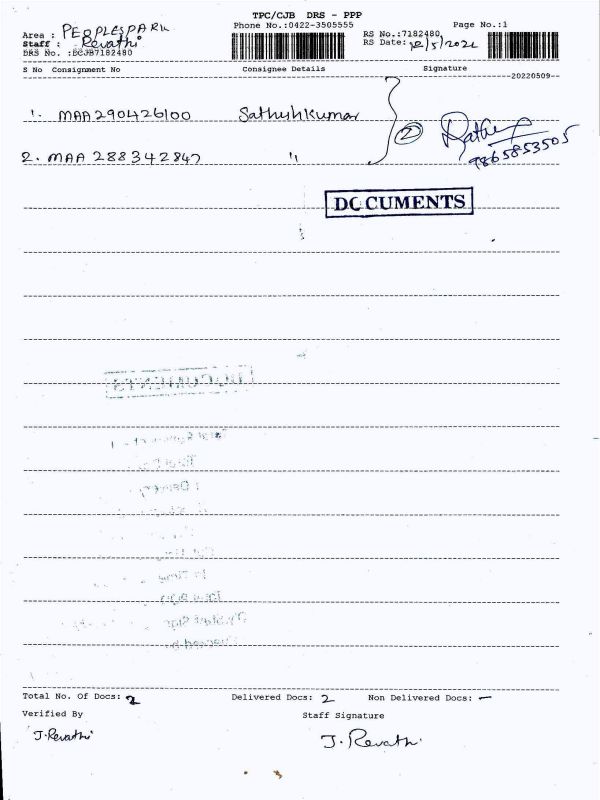 TPC/CJB DRS - PPP
Phone No.:0422-3505555
Page No.:1
Area : PEOPLESPARK
Staff : Revathi
DRS No. :BCJB7182480
RS No.:7182480
RS Date: 12/5/2022
S No Consignment No Consignee Details Signature
20220509
1. MAA290426100 Sathishkumar
2
9865853505
2. MAA 288342847 "
DOCUMENTS
DOCUMENTS
Total No. Of Docs: 2 Delivered Docs: 2 Non Delivered Docs: —
Verified By Staff Signature
J. Revathi J. Revathi